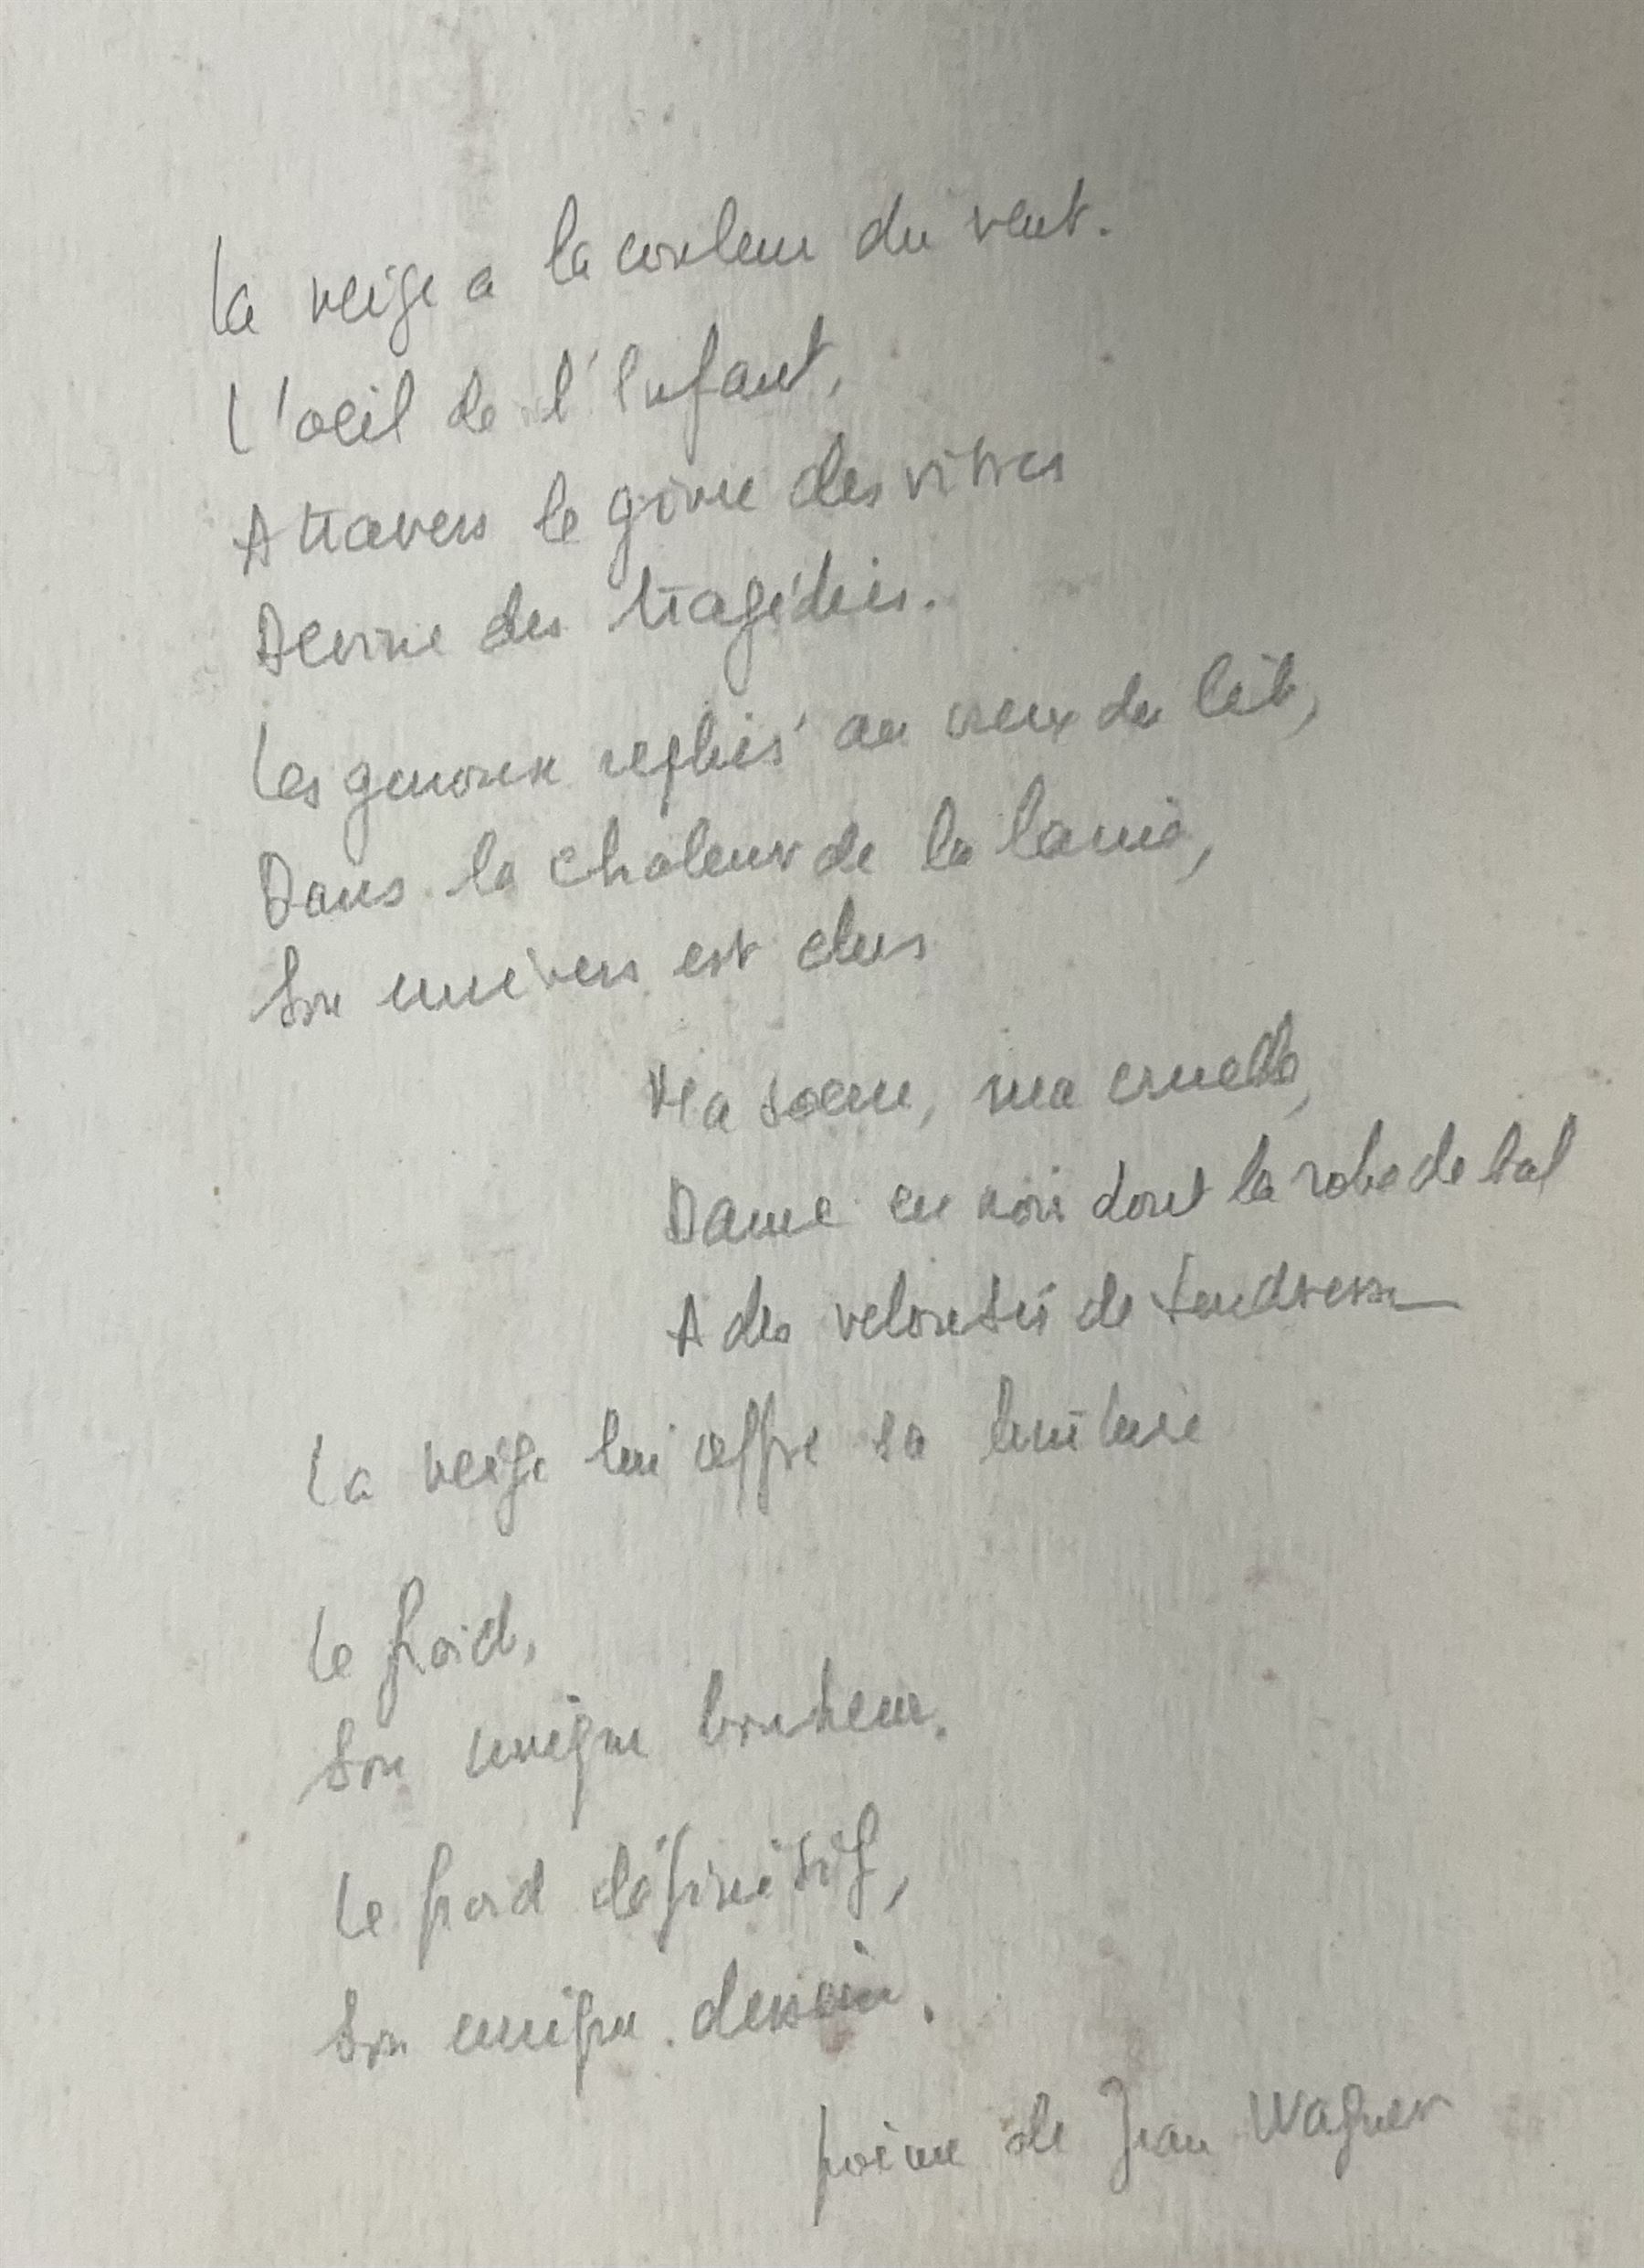 La neige a la couleur du vent.
L'oeil de l'Enfant,
A travers le givre des vitres
Devine des tragédies.
Les genoux repliés au creux du lit,
Dans la chaleur de la laine,
Son univers est clos
Ma soeur, ma cruelle,
Dame en noir dont la robe de bal
A des veloutés de tendresse
La neige lui offre sa lumière
Le froid,
Son unique bonheur.
Le froid définitif,
Son unique dessein.
poème de Jean Wagner